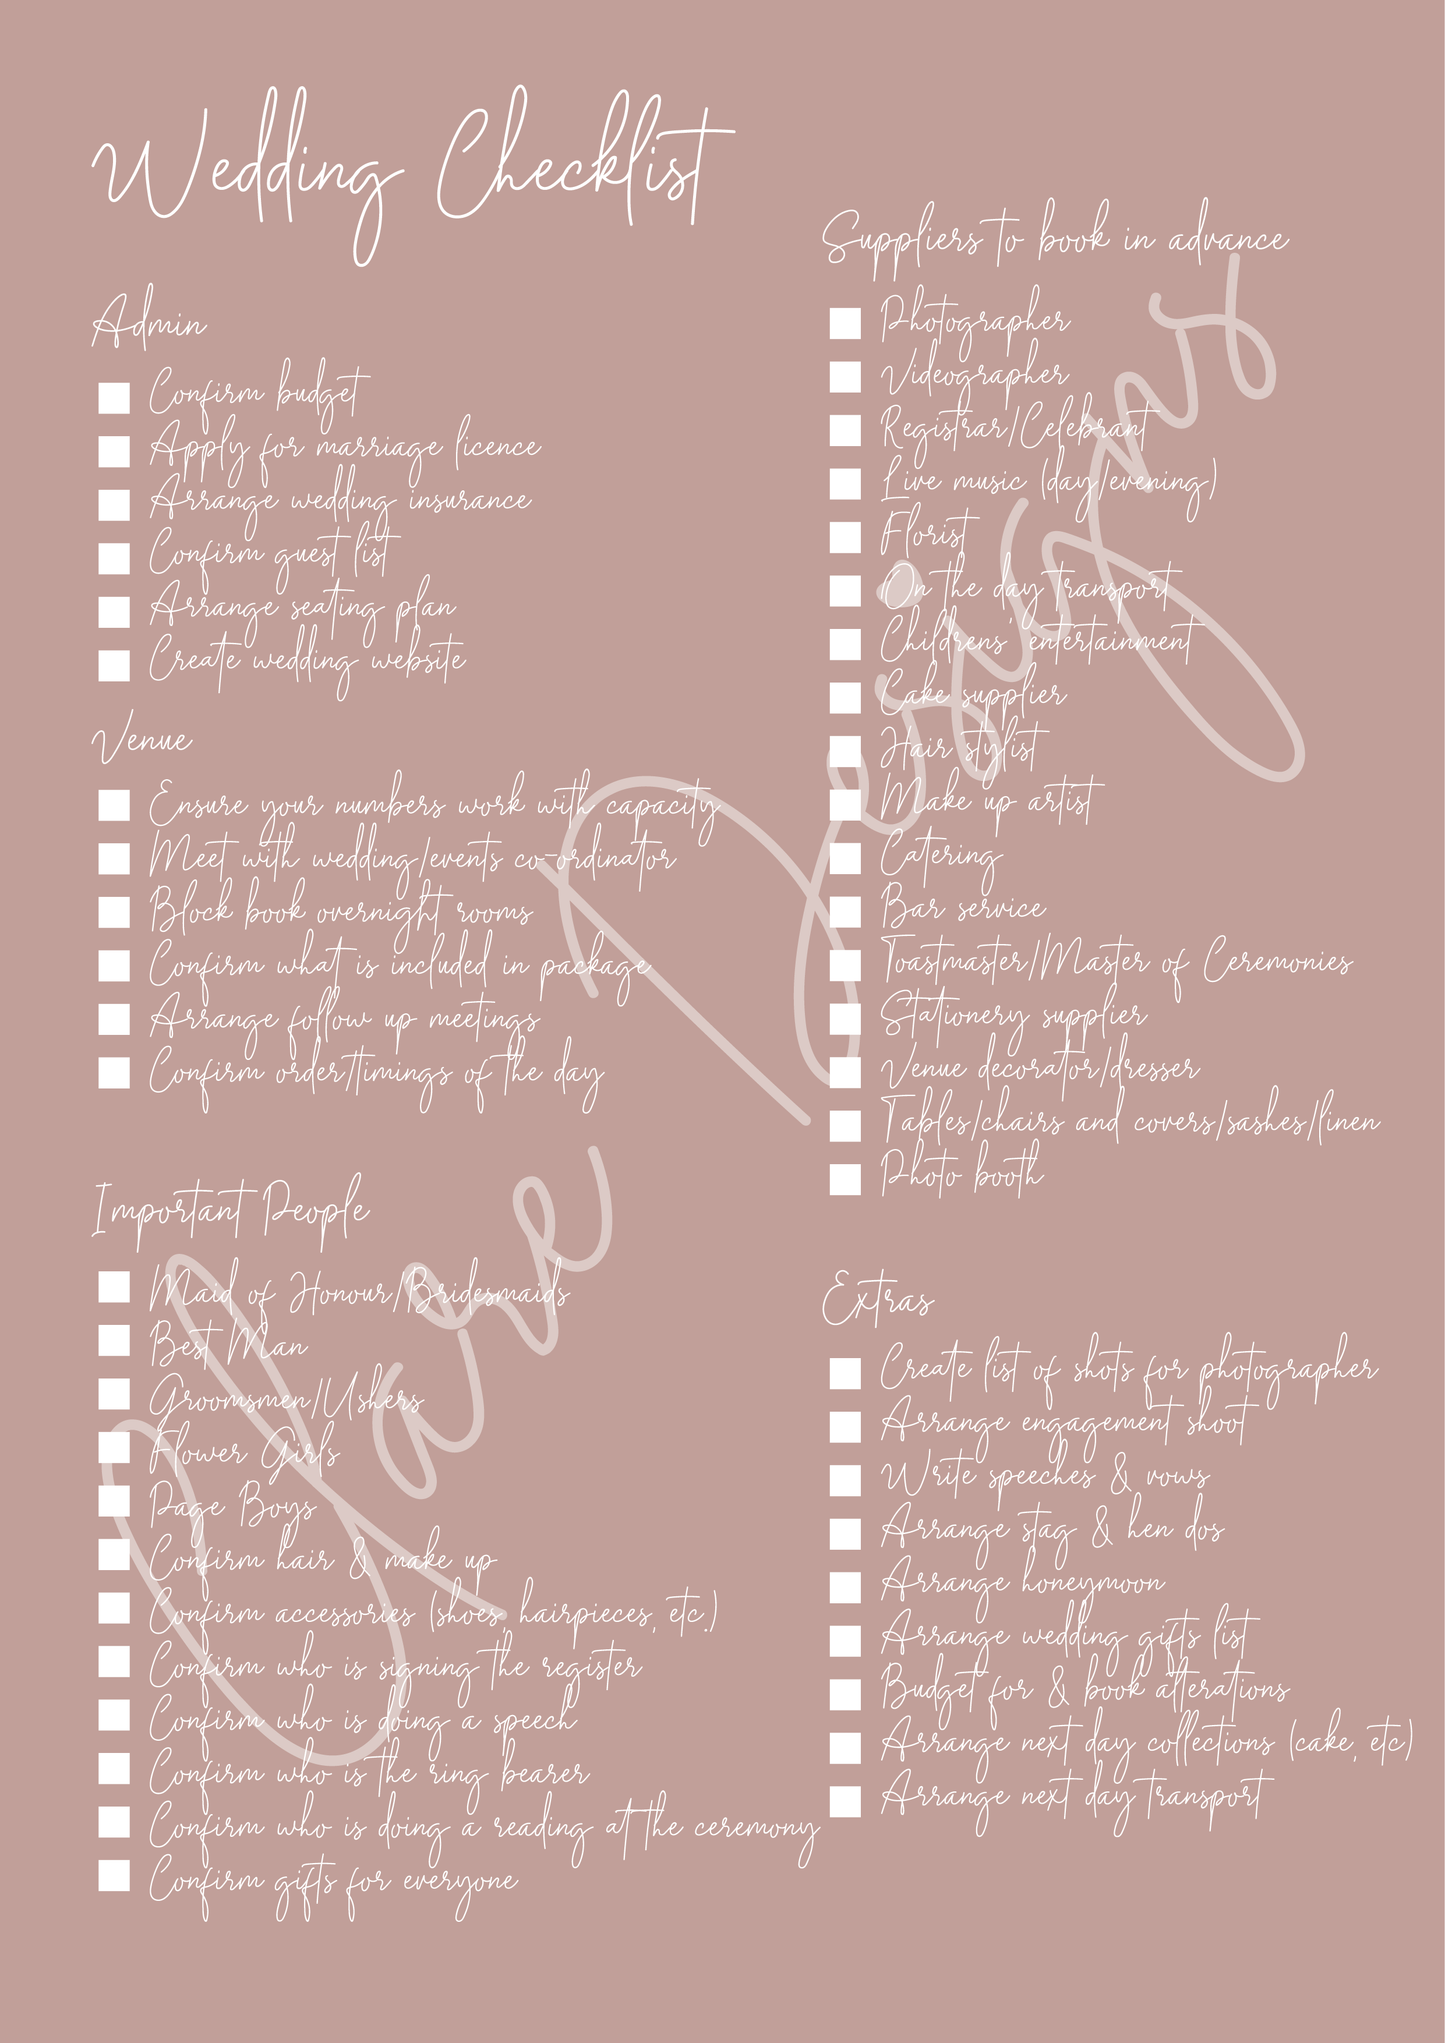 Wedding Checklist
Admin
Confirm budget
Apply for marriage licence
Arrange wedding insurance
Confirm guest list
Arrange seating plan
Create wedding website
Venue
Ensure your numbers work with capacity
Meet with wedding/events co-ordinator
Block book overnight rooms
Confirm what is included in package
Arrange follow up meetings
Confirm order/timings of the day
Important People
Maid of Honour/Bridesmaids
Best Man
Groomsmen/Ushers
Flower Girls
Page Boys
Confirm hair & make up
Confirm accessories (shoes, hairpieces, etc.)
Confirm who is signing the register
Confirm who is doing a speech
Confirm who is the ring bearer
Confirm who is doing a reading at the ceremony
Confirm gifts for everyone
Suppliers to book in advance
Photographer
Videographer
Registrar/Celebrant
Live music (day/evening)
Florist
On the day transport
Childrens' entertainment
Cake supplier
Hair stylist
Make up artist
Catering
Bar service
Toastmaster/Master of Ceremonies
Stationery supplier
Venue decorator/dresser
Tables/chairs and covers/sashes/linen
Photo booth
Extras
Create list of shots for photographer
Arrange engagement shoot
Write speeches & vows
Arrange stag & hen dos
Arrange honeymoon
Arrange wedding gifts list
Budget for & book alterations
Arrange next day collections (cake, etc)
Arrange next day transport
Designs